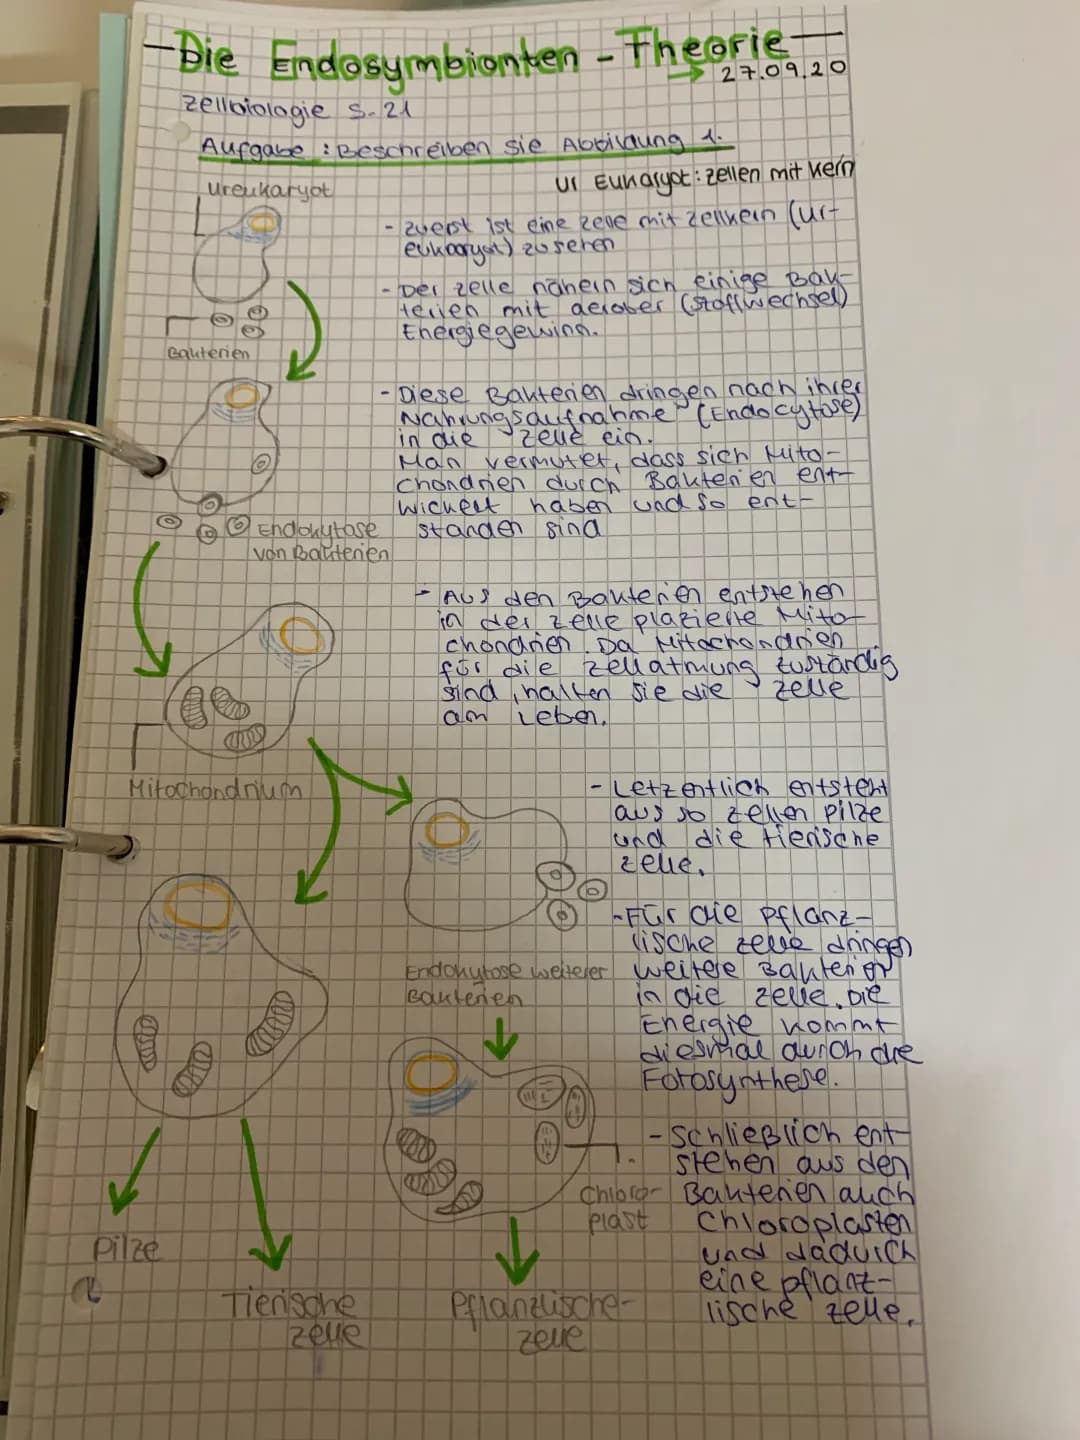 Die Endosymbionten - Theorie
→ 27.09.20
Zellbiologie S. 21
Aufgabe : Beschreiben sie Abbildung 1.
Ureukaryot
Ur Eukaryot : zellen mit Kern
- zuerst ist eine zelle mit zellkern (ur-
eukaaryot) zu sehen
- Der zelle nähern sich einige Bak-
terien mit aerober (Stoffwechsel)
Energiegewinn.
Bakterien
- Diese Bakterien dringen nach ihrer
Nahrungsaufnahme (Endocytose)
in die zelle ein.
Man vermutet, dass sich Mito-
chondrien durch Bakterien ent-
wickelt haben und so ent-
standen sind
Endokytose
von Bakterien
- Aus den Bakterien entstehen
in der zelle plazierte Mito-
chondrien. Da Mitochondrien
für die zellatmung zuständig
sind, halten sie die zelle
am Leben.
Mitochondrium
- Letzentlich entsteht
aus so zellen pilze
und die tierische
zelle.
- Für die pflanz-
lische zelle dringen
weitere Bakterien
in die zelle. Die
Energie kommt
diesmal durch die
Fotosynthese.
Endokytose weiterer
Bakterien
- Schließlich ent-
stehen aus den
Bakterien auch
Chloroplasten
und dadurch
eine pflanz-
lische zelle.
Chloro-
plast
Pilze
Tierische
zelle
Pflanzlische-
zelle